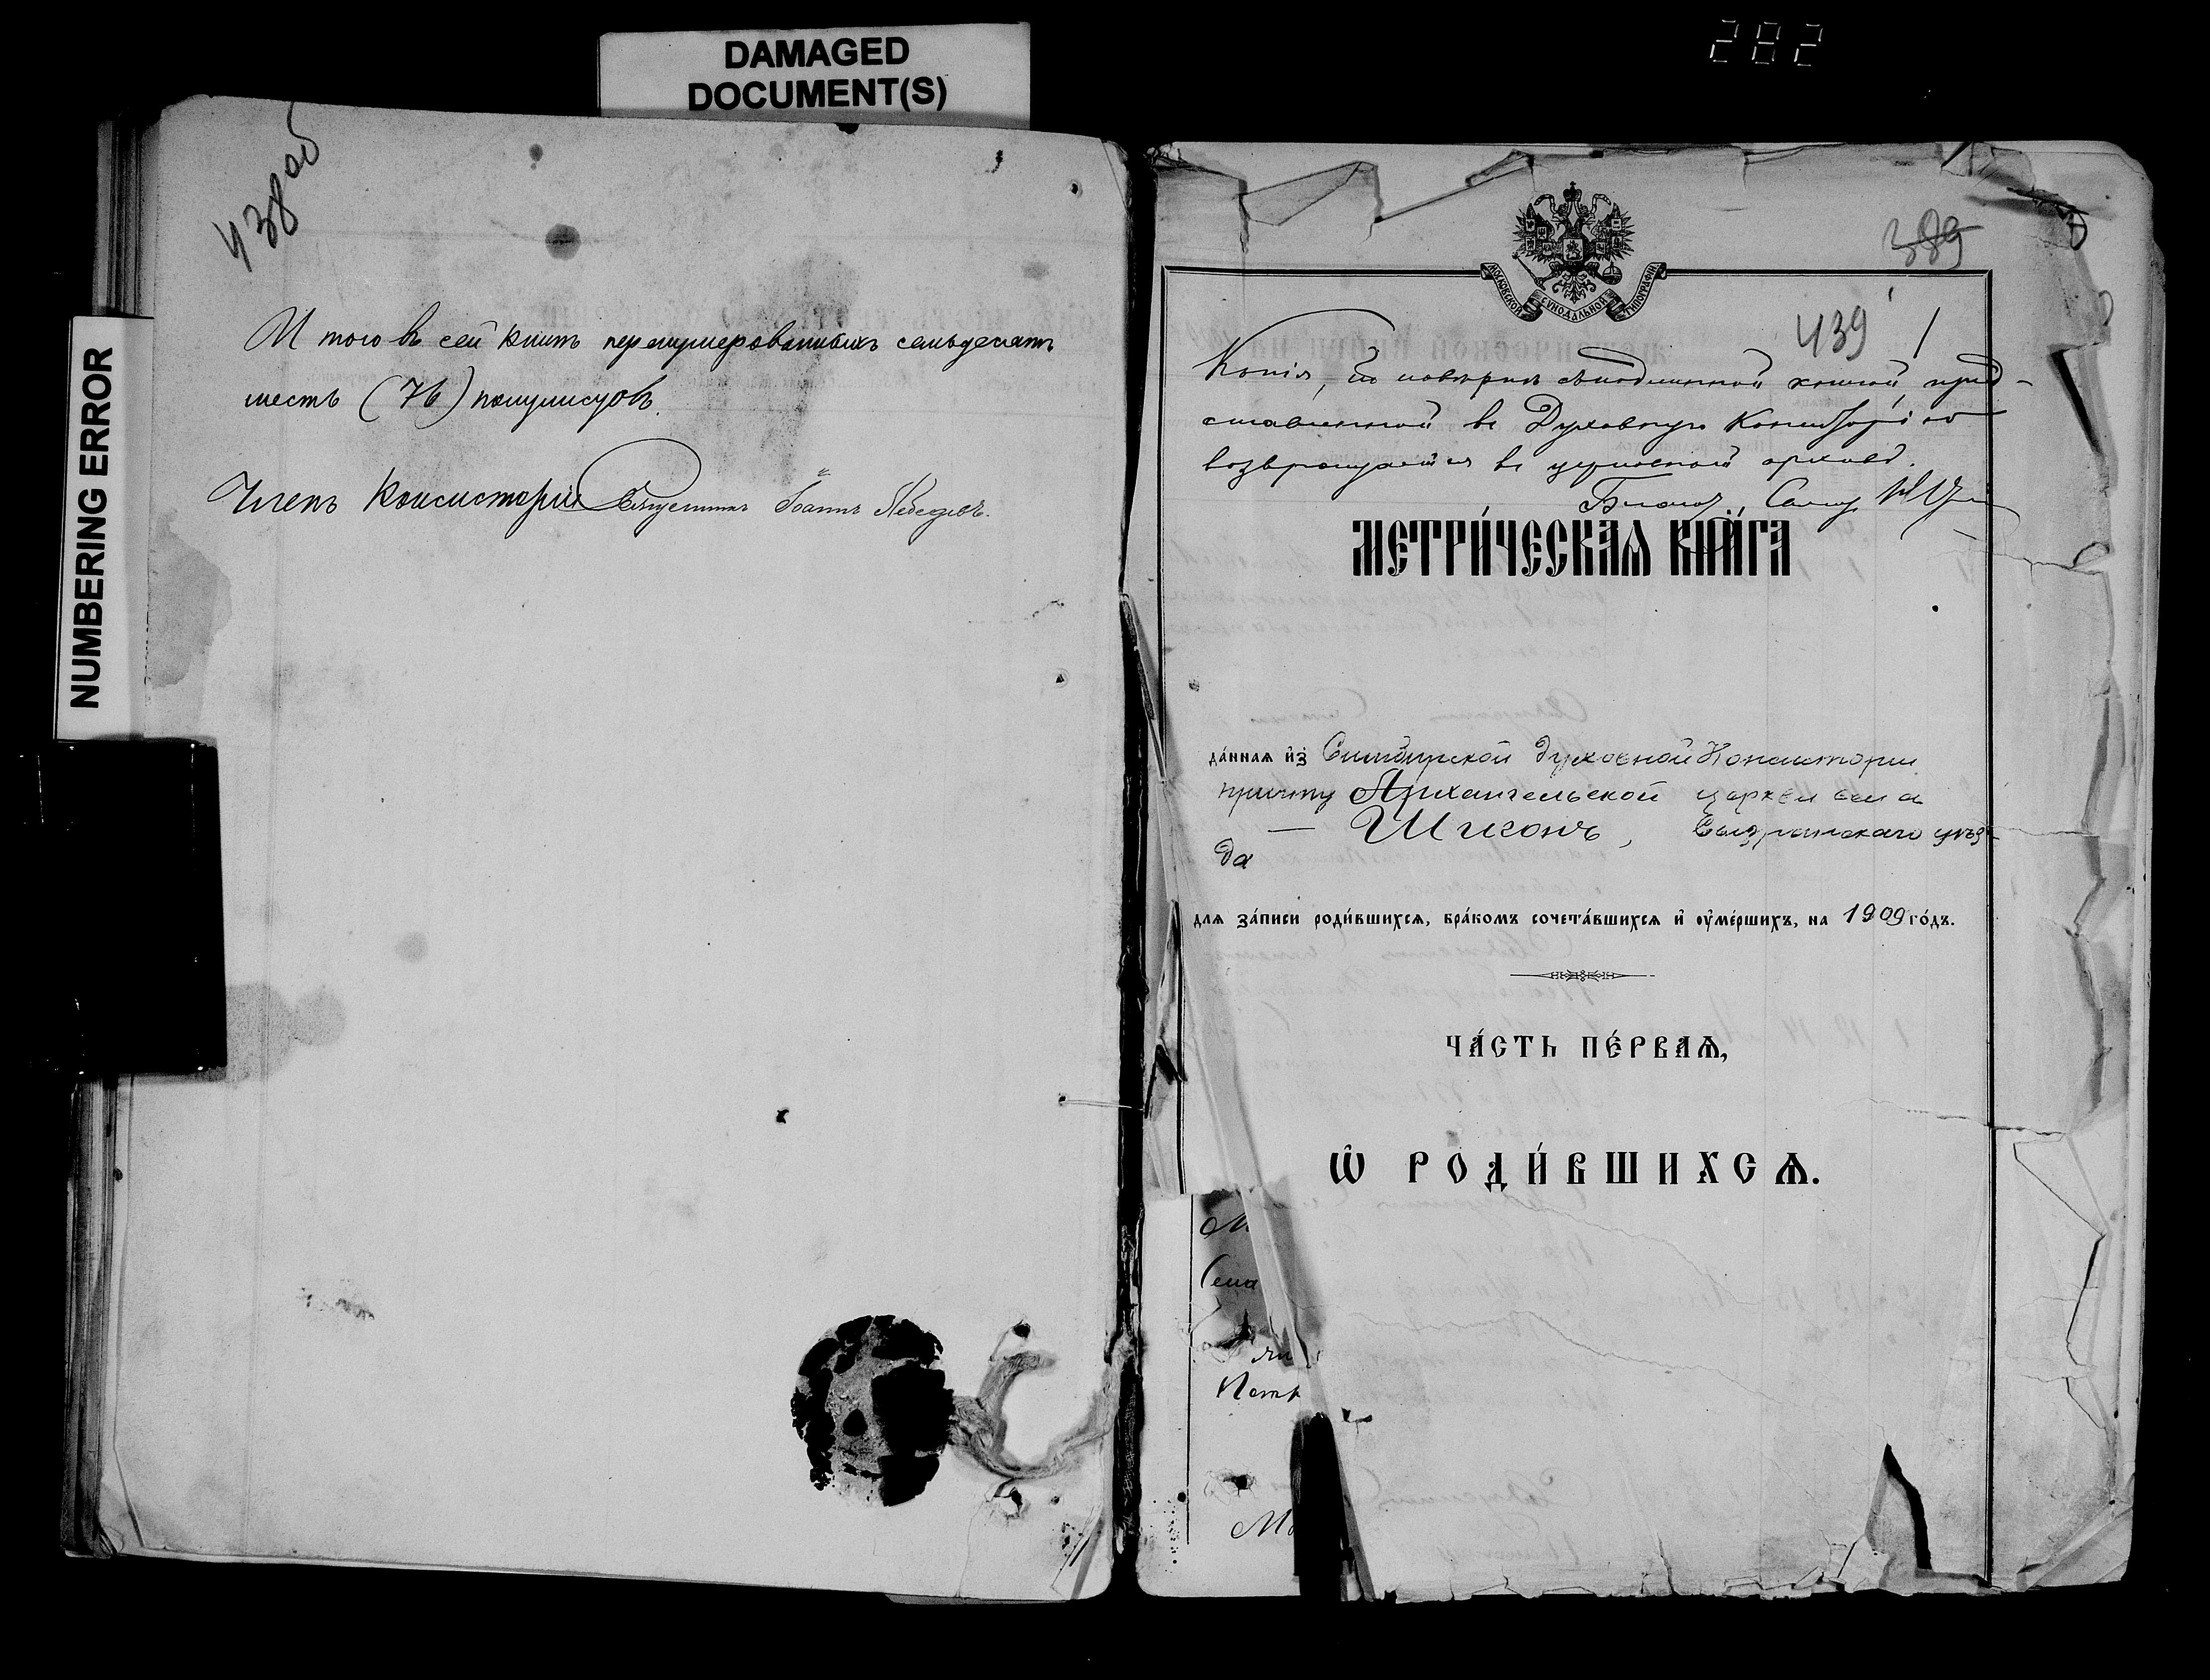 DAMAGED
DOCUMENT(S)
282
NUMBERING ERROR
438 об
И того въ сей книгѣ перенумерованныхъ семьдесятъ
шесть (76) полулистовъ.
Членъ Консисторіи Священникъ Іоаннъ Лебедевъ.
389
МОСКОВСКОЙ СѴНОДАЛЬНОЙ ТИПОГРАФІИ
439 1
Копія, по повѣркѣ съ подлинной книгой, пред-
ставленной въ Духовную Консисторію
возвращается въ церковный архивъ.
МЕТРИ́ЧЕСКАѦ КНИ́ГА
да́ннаѧ и҆з̾ Симбирской Духовной Консисторіи
причту Архангельской церкви села
— Шигонъ, Сызранскаго уѣз-
да
для за́писи роди́вшихсѧ, бра́комъ сочета́вшихсѧ и҆ ᲂу҆ме́ршихъ, на 1909 го́дъ.
ЧА́СТЬ ПЕ́РВАѦ,
Ѡ҆ РОДИ́ВШИХСѦ.